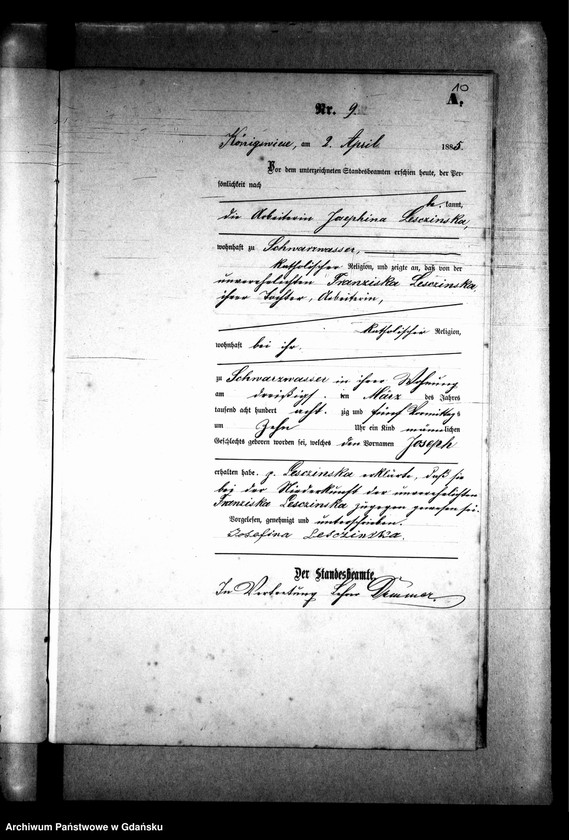 10
A.
Nr. 9.
Königswiese, am 2. April 1885.
Vor dem unterzeichneten Standesbeamten erschien heute, der Per-
sönlichkeit nach
be kannt,
die Arbeiterin Josephina Lesczinska,
wohnhaft zu Schwarzwasser,
katholischer Religion, und zeigte an, daß von der
unverehelichten Franziska Lesczinska,
ihrer Tochter, Arbeiterin,
katholischer Religion,
wohnhaft bei ihr.
zu Schwarzwasser in ihrer Wohnung
am dreißigst. den März des Jahres
tausend acht hundert acht. zig und fünf Vormittags
um Zehn Uhr ein Kind männlichen
Geschlechts geboren worden sei, welches den Vornamen Joseph
erhalten habe. p. Lesczinska erklärte, daß sie
bei der Niederkunft der unverehelichten
Franziska Lesczinska zugegen gewesen sei.
Vorgelesen, genehmigt und unterschrieben.
Josefina Lesczinska.
Der Standesbeamte.
In Vertretung Lehrer
Archiwum Państwowe w Gdańsku